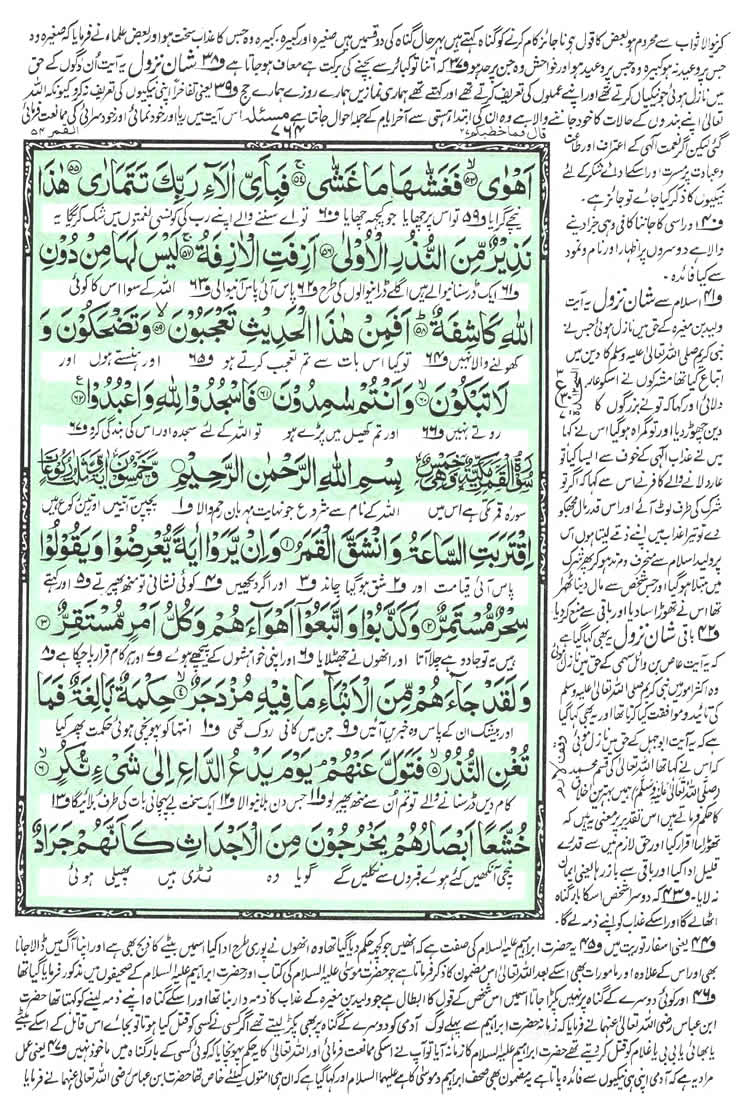 کرنیوالا ثواب سے محروم ہو بعض کا قول ہو ناجائز کام کرنے کو گناہ کہتے ہیں بہر حال گناہ کی دو قسمیں ہیں صغیرہ اور کبیرہ، کبیرہ وہ جس کا عذاب سخت ہو اور بعض علماء نے فرمایا کہ صغیرہ وہ
جس پر وعید نہ ہو کبیرہ وہ جس پر وعید ہو اور فواحش وہ جن پر حد ہو و۳۷ کہ اتنا تو کبائر سے بچنے کی برکت سے معاف ہو جاتا ہے و۳۸ شان نزول یہ آیت اُن لوگوں کے حق
میں نازل ہوئی جو نیکیاں کرتے تھے اور اپنے عملوں کی تعریف کرتے تھے اور کہتے تھے ہماری نمازیں ہمارے روزے ہمارے حج و۳۹ یعنی تفاخراً اپنی نیکیوں کی تعریف نہ کرو کیونکہ اللہ
تعالیٰ اپنے بندوں کے حالات کا خود جاننے والا ہے وہ ان کی ابتداء ہستی سے آخر ایام کے جملہ احوال جانتا ہے مسئلہ اس آیت میں ریا اور خود نمائی اور خود سرائی کی ممانعت فرمائی
القمر ۵۴
۷۶۴
قال فما خطبکم ۲۷
گئی لیکن اگر نعمت الٰہی کے اعتراف اور طاعت
و عبادت پر مسرت اور اسکے ادائے شکر کے لئے
نیکیوں کا ذکر کیا جائے تو جائز ہے۔
و۴۰ اور اسی کا جاننا کافی وہی جزا دینے
والا ہے دوسروں پر اظہار اور نام و نمود
سے کیا فائدہ۔
و۴۱ اسلام سے شان نزول یہ آیت
ولید بن مغیرہ کے حق میں نازل ہوئی جس نے
نبی کریم صلی اللہ تعالیٰ علیہ وسلم کا دین میں
اتباع کیا تھا مشرکوں نے اسکو عار
دلائی اور کہا کہ تو نے بزرگوں کا
دین چھوڑ دیا اور تو گمراہ ہو گیا اس نے کہا
میں نے عذاب الٰہی کے خوف سے ایسا کیا تو
عار دلانے والے کافر نے اس سے کہا کہ اگر تو
شرک کی طرف لوٹ آئے اور اس قدر مال مجھکو
دے تو تیرا عذاب میں اپنے ذمے لیتا ہوں اس
پر ولید اسلام سے منحرف و مرتد ہو کر پھر شرک
میں مبتلا ہو گیا اور جس شخص سے مال دینا ٹھہرا
تھا اس نے تھوڑا سا دیا اور باقی سے منع کر دیا
و۴۲ باقی شان نزول یہ بھی کہا گیا ہے
کہ یہ آیت عاص بن وائل سہمی کے حق میں نازل ہوئی
وہ اکثر امور میں نبی کریم صلی اللہ تعالیٰ علیہ وسلم
کی تائید و موافقت کیا کرتا تھا اور یہ بھی کہا گیا
ہے کہ یہ آیت ابوجہل کے حق میں نازل ہوئی
کہ اس نے کہا تھا اللہ تعالیٰ کی قسم محمد
(صلی اللہ تعالیٰ علیہ وسلم) ہمیں بہترین اخلاق
کا حکم فرماتے ہیں اس تقدیر پر معنی یہ ہیں کہ
تھوڑا سا اقرار کیا اور حق لازم میں سے قدرے
قلیل ادا کیا اور باقی سے باز رہا یعنی ایمان
نہ لایا۔ و۴۳ کہ دوسرا شخص اسکا بار گناہ
اٹھالے گا اور اسکے عذاب کو اپنے ذمہ لے گا۔
اَهْوٰى ۵۳ فَغَشّٰىهَا مَا غَشّٰى ۵۴ فَبِاَيِّ اٰلَآءِ رَبِّكَ تَتَمَارٰى ۵۵ هٰذَا
نیچے گرایا و۵۹ تو اس پر چھایا جو کچھ چھایا و۶۰ تو اے سننے والے اپنے رب کی کونسی نعمتوں میں شک کرے گا یہ
نَذِيْرٌ مِّنَ النُّذُرِ الْاُوْلٰى ۵۶ اَزِفَتِ الْاٰزِفَةُ ۵۷ لَيْسَ لَهَا مِنْ دُوْنِ
و۶۱ ایک ڈر سنانیوالے ہیں اگلے ڈرانیوالوں کی طرح و۶۲ پاس آئی پاس آنیوالی و۶۳ اللہ کے سوا اس کا کوئی
اللّٰهِ كَاشِفَةٌ ۵۸ اَفَمِنْ هٰذَا الْحَدِيْثِ تَعْجَبُوْنَ ۵۹ وَتَضْحَكُوْنَ وَ
کھولنے والا نہیں و۶۴ تو کیا اس بات سے تم تعجب کرتے ہو و۶۵ اور ہنستے ہو اور
لَا تَبْكُوْنَ ۶۰ وَاَنْتُمْ سٰمِدُوْنَ ۶۱ فَاسْجُدُوْا لِلّٰهِ وَاعْبُدُوْا ۶۲
روتے نہیں و۶۶ اور تم کھیل میں پڑے ہو تو اللہ کے لئے سجدہ اور اس کی بندگی کرو و۶۷
سُوْرَةُ الْقَمَرِ مَكِّيَّةٌ وَّهِيَ خَمْسٌ بِسْمِ اللّٰهِ الرَّحْمٰنِ الرَّحِيْمِ وَّخَمْسُوْنَ اٰيَةً وَّثَلٰثُ رُكُوْعَاتٍ
سورہ قمر مکی ہے اس میں اللہ کے نام سے شروع جو نہایت مہربان رحم والا و۱ پچپن آیتیں اور تین رکوع ہیں
اِقْتَرَبَتِ السَّاعَةُ وَانْشَقَّ الْقَمَرُ ۱ وَاِنْ يَّرَوْا اٰيَةً يُّعْرِضُوْا وَيَقُوْلُوْا
پاس آئی قیامت اور و۲ شق ہو گیا چاند و۳ اور اگر دیکھیں و۴ کوئی نشانی تو منہ پھیرتے و۵ اور کہتے
سِحْرٌ مُّسْتَمِرٌّ ۲ وَكَذَّبُوْا وَاتَّبَعُوْٓا اَهْوَآءَهُمْ وَكُلُّ اَمْرٍ مُّسْتَقِرٌّ ۳
ہیں یہ تو جادو ہے چلا آتا اور انھوں نے جھٹلایا و۶ اور اپنی خواہشوں کے پیچھے ہوئے و۷ اور ہر کام قرار پا چکا ہے و۸
وَلَقَدْ جَآءَهُمْ مِّنَ الْاَنْۢبَآءِ مَا فِيْهِ مُزْدَجَرٌ ۴ حِكْمَةٌۢ بَالِغَةٌ فَمَا
اور بیشک ان کے پاس وہ خبریں آئیں و۹ جن میں کافی روک تھی و۱۰ انتہا کو پہونچی ہوئی حکمت پھر کیا
تُغْنِ النُّذُرُ ۵ فَتَوَلَّ عَنْهُمْ يَوْمَ يَدْعُ الدَّاعِ اِلٰى شَيْءٍ نُّكُرٍ ۶
کام دیں ڈر سنانے والے تو تم اُن سے منھ پھیر لو و۱۱ جس دن بلانیوالا و۱۲ ایک سخت بے پہچانی بات کی طرف بلائے گا و۱۳
خُشَّعًا اَبْصَارُهُمْ يَخْرُجُوْنَ مِنَ الْاَجْدَاثِ كَاَنَّهُمْ جَرَادٌ
نیچی آنکھیں کئے ہوئے قبروں سے نکلیں گے گویا وہ ٹڈی ہیں پھیلی ہوئی
و۴۴ یعنی اسفار توریت میں و۴۵ یہ حضرت ابراہیم علیہ السلام کی صفت ہے کہ انھیں جو کچھ حکم دیا گیا تھا وہ انھوں نے پوری طرح ادا کیا اسمیں بیٹے کا ذبح بھی ہے اور اپنا آگ میں ڈالا جانا
بھی اور اس کے علاوہ اور مامورات بھی اسکے بعد اللہ تعالیٰ اس مضمون کا ذکر فرماتا ہے جو حضرت موسیٰ علیہ السلام کی کتاب اور حضرت ابراہیم علیہ السلام کے صحیفوں میں مذکور فرمایا گیا تھا
و۴۶ اور کوئی دوسرے کے گناہ پر نہیں پکڑا جاتا اسمیں اس شخص کے قول کا ابطال ہے جو ولید بن مغیرہ کے عذاب کا ذمہ دار بنا تھا اور اسکے گناہ اپنے ذمہ لینے کو کہتا تھا حضرت
ابن عباس رضی اللہ تعالیٰ عنہما نے فرمایا کہ زمانہ حضرت ابراہیم سے پہلے لوگ آدمی کو دوسرے کے گناہ پر بھی پکڑ لیتے تھے اگر کسی نے کسی کو قتل کیا ہوتا تو بجائے اس قاتل کے اسکے بیٹے
یا بھائی یا بی بی یا غلام کو قتل کر دیتے تھے حضرت ابراہیم علیہ السلام کا زمانہ آیا تو آپ نے اسکی ممانعت فرمائی اور اللہ تعالیٰ کا یہ حکم پہونچایا کہ کوئی کسی کے بار گناہ میں ماخوذ نہیں و۴۷ یعنی عمل
مراد یہ ہے کہ آدمی اپنی ہی نیکیوں سے فائدہ پاتا ہے یہ مضمون بھی صحف ابراہیم و موسیٰ کا ہے علیہما السلام اور کہا گیا ہے کہ ان ہی امتوں کیلئے خاص تھا حضرت ابن عباس رضی اللہ تعالیٰ عنہما نے فرمایا